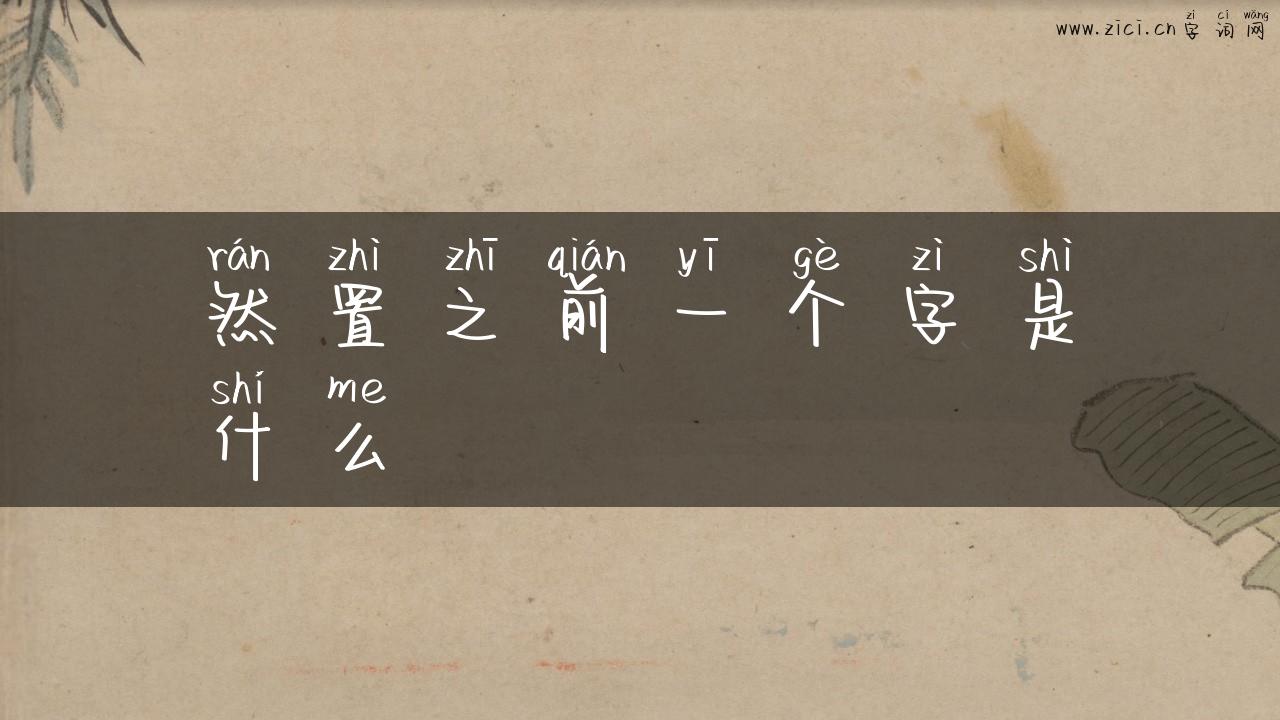 www.zici.cn 字词网
zì cí wǎng
rán zhì zhī qián yī gè zì shì
然置之前一个字是
shí me
什么